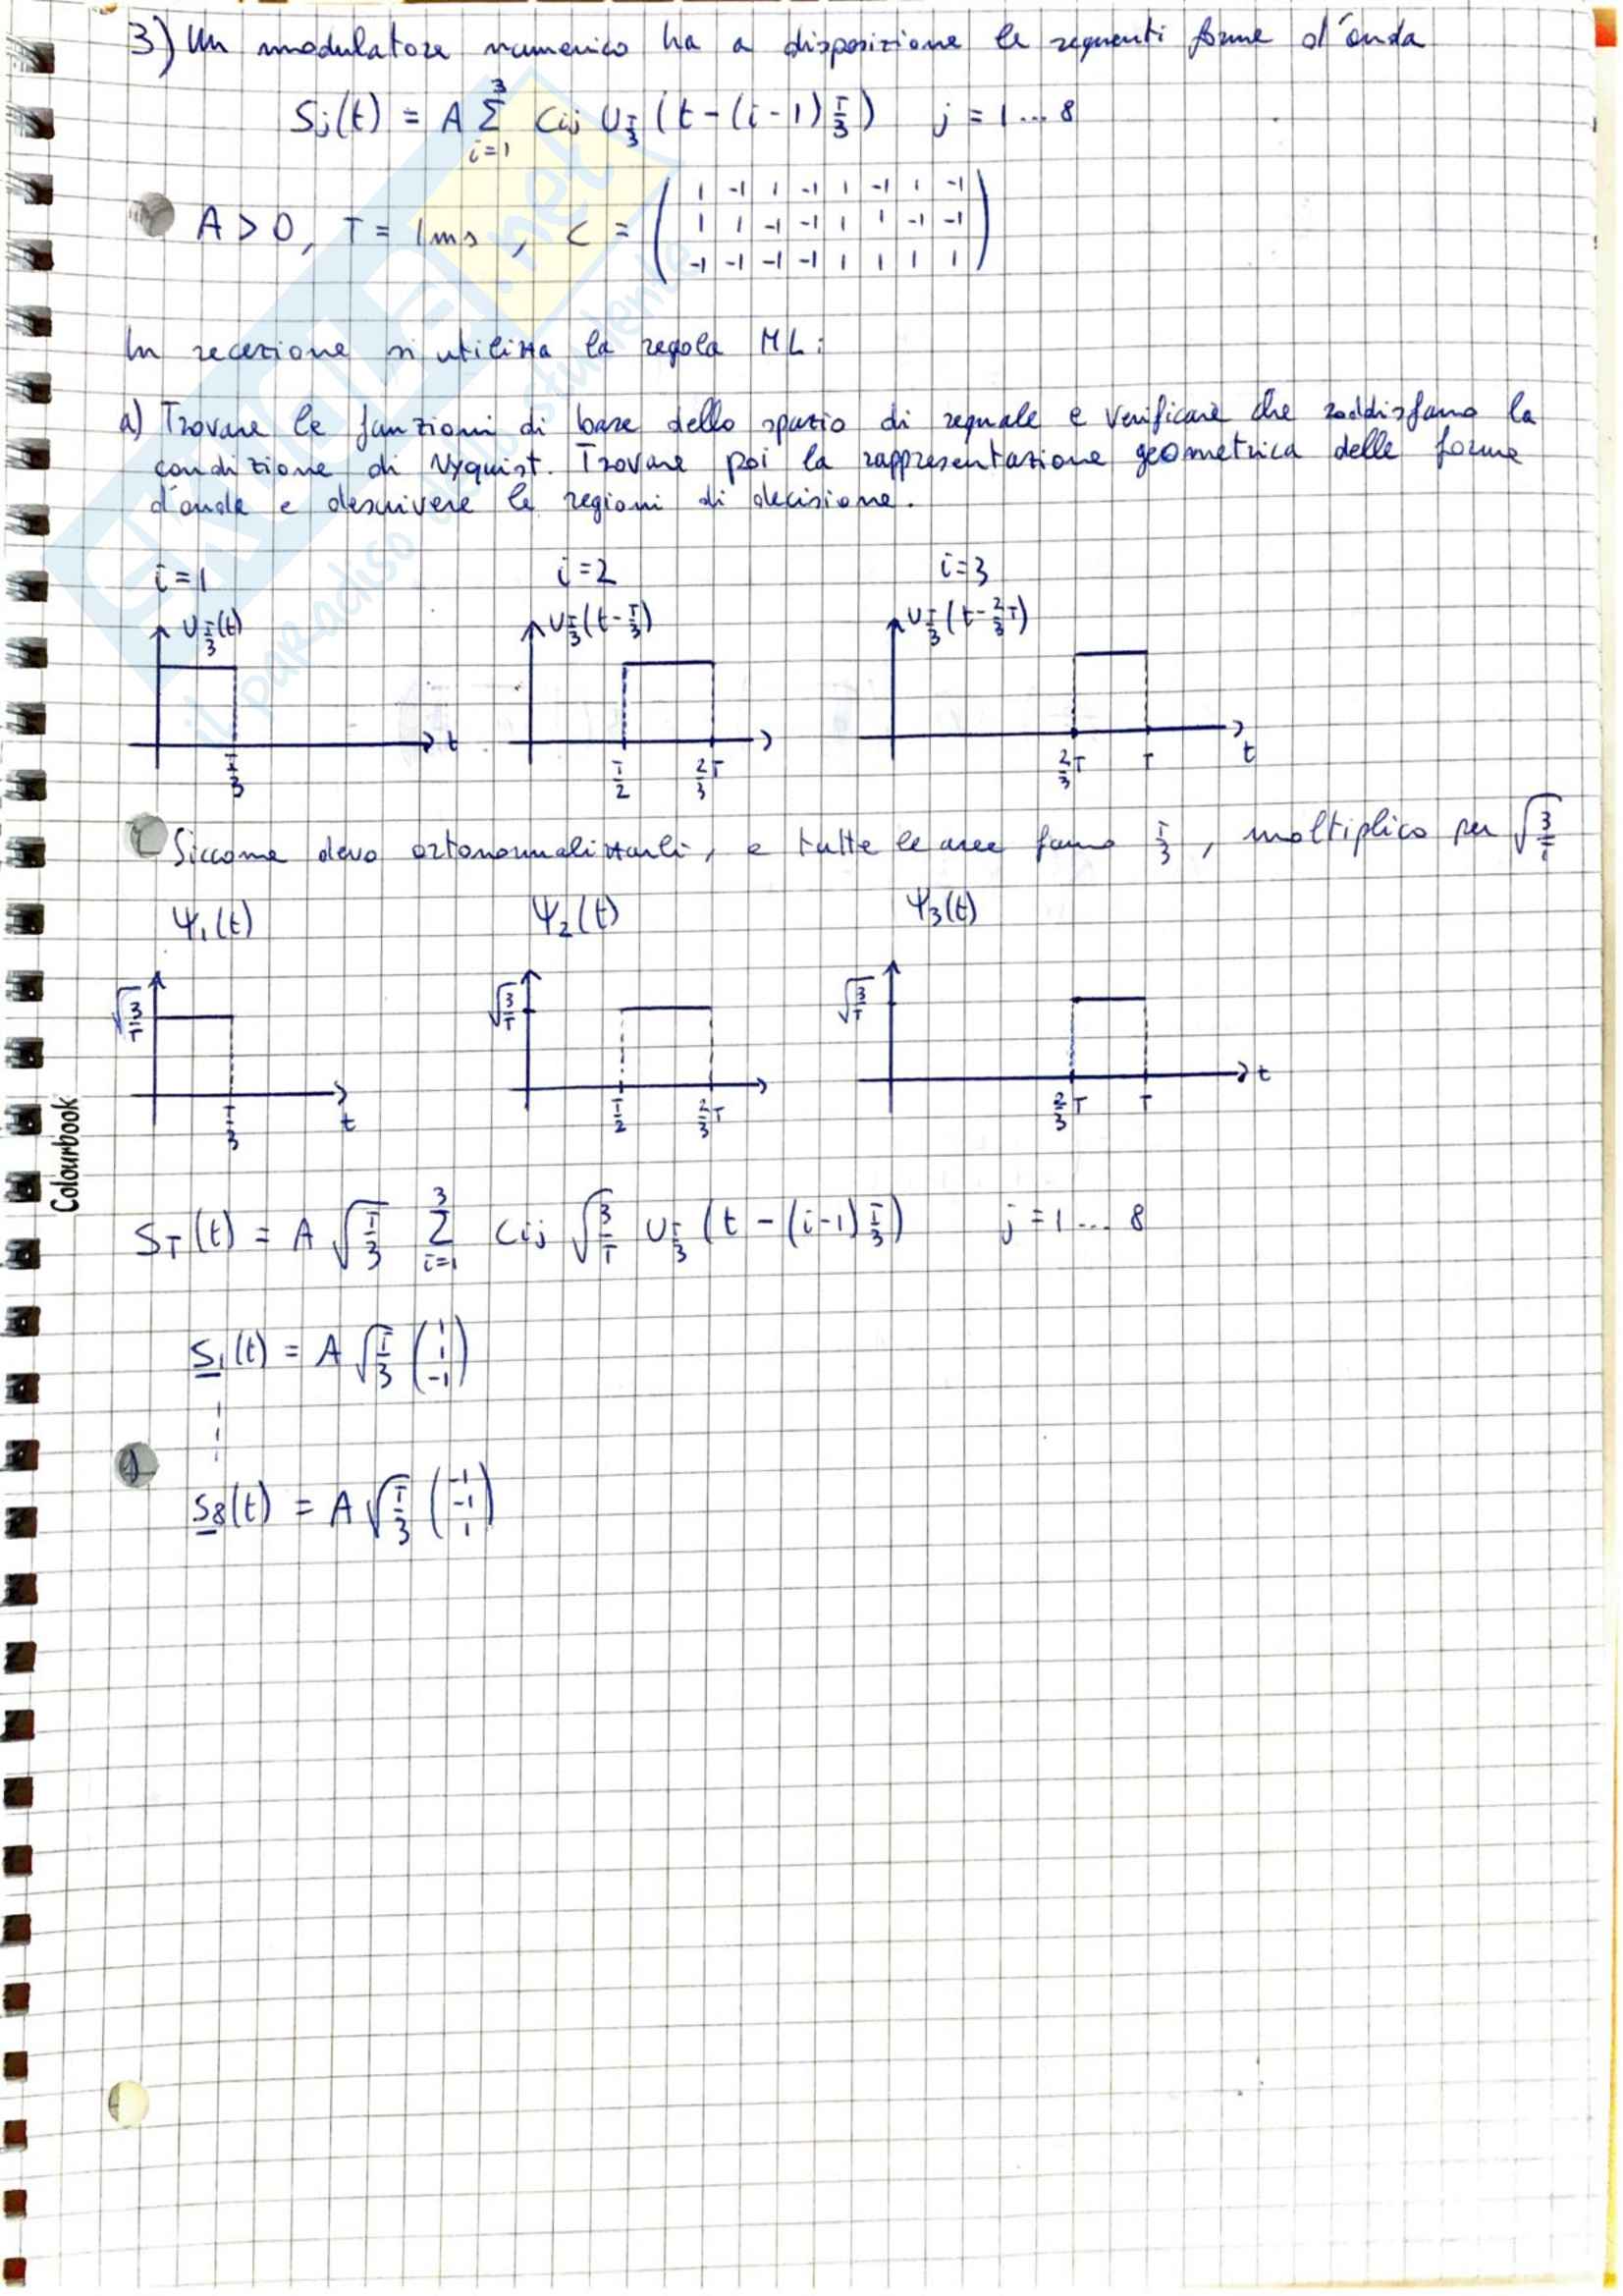 3) Un modulatore numerico ha a disposizione le seguenti forme d'onda
Sj(t) = A Σ_{i=1}^{3} Cij U_{T/3} (t-(i-1)T/3) j = 1...8
A > 0, T = 1ms, C = ( 1 -1 1 -1 1 -1 1 -1
1 1 -1 -1 1 1 -1 -1
-1 -1 -1 -1 1 1 1 1 )
In recezione si utilizza la regola ML:
a) Trovare le funzioni di base dello spazio di segnale e verificare che soddisfano la
condizione di Nyquist. Trovare poi la rappresentazione geometrica delle forme
d'onda e descrivere le regioni di decisione.
i=1 i=2 i=3
U_{T/3}(t) U_{T/3}(t-T/3) U_{T/3}(t-2/3T)
t t
T/3 T/2 2/3T 2/3T T
Siccome devo ortonormalizzarli, e tutte le aree fanno T/3, moltiplico per √(3/T)
Ψ1(t) Ψ2(t) Ψ3(t)
√(3/T) √(3/T) √(3/T)
t t
T/3 T/2 2/3T 2/3T T
ST(t) = A √(T/3) Σ_{i=1}^{3} Cij √(3/T) U_{T/3} (t-(i-1)T/3) j = 1...8
S1(t) = A √(T/3) (1 1 -1)
S8(t) = A √(T/3) (-1 -1 1)
Colourbook
SKUOLA.net
il paradiso dello studente